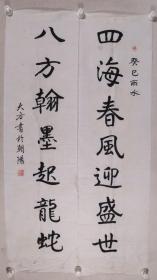 癸巳雨水
四海春風迎盛世
八方翰墨起龍蛇
大為書於朝陽